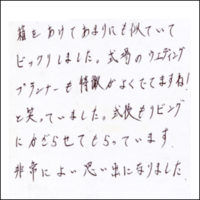 箱をあけてあまりにも似ていて
ビックリしました。式場のウエディング
プランナーも特徴がよくでてますね!
と笑っていました。式後もリビング
にかざらせてもらっています。
非常によい思い出になりました。